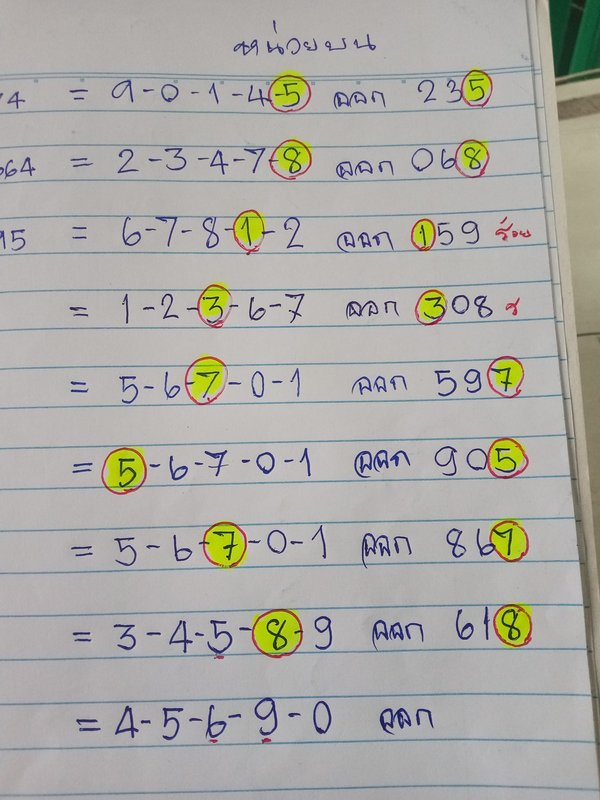 หน่วยบน
74 = 9-0-1-4-5 ออก 235
664 = 2-3-4-7-8 ออก 068
95 = 6-7-8-1-2 ออก 159 ร้อย
= 1-2-3-6-7 ออก 308 ร
= 5-6-7-0-1 ออก 597
= 5-6-7-0-1 ออก 905
= 5-6-7-0-1 ออก 867
= 3-4-5-8-9 ออก 618
= 4-5-6-9-0 ออก